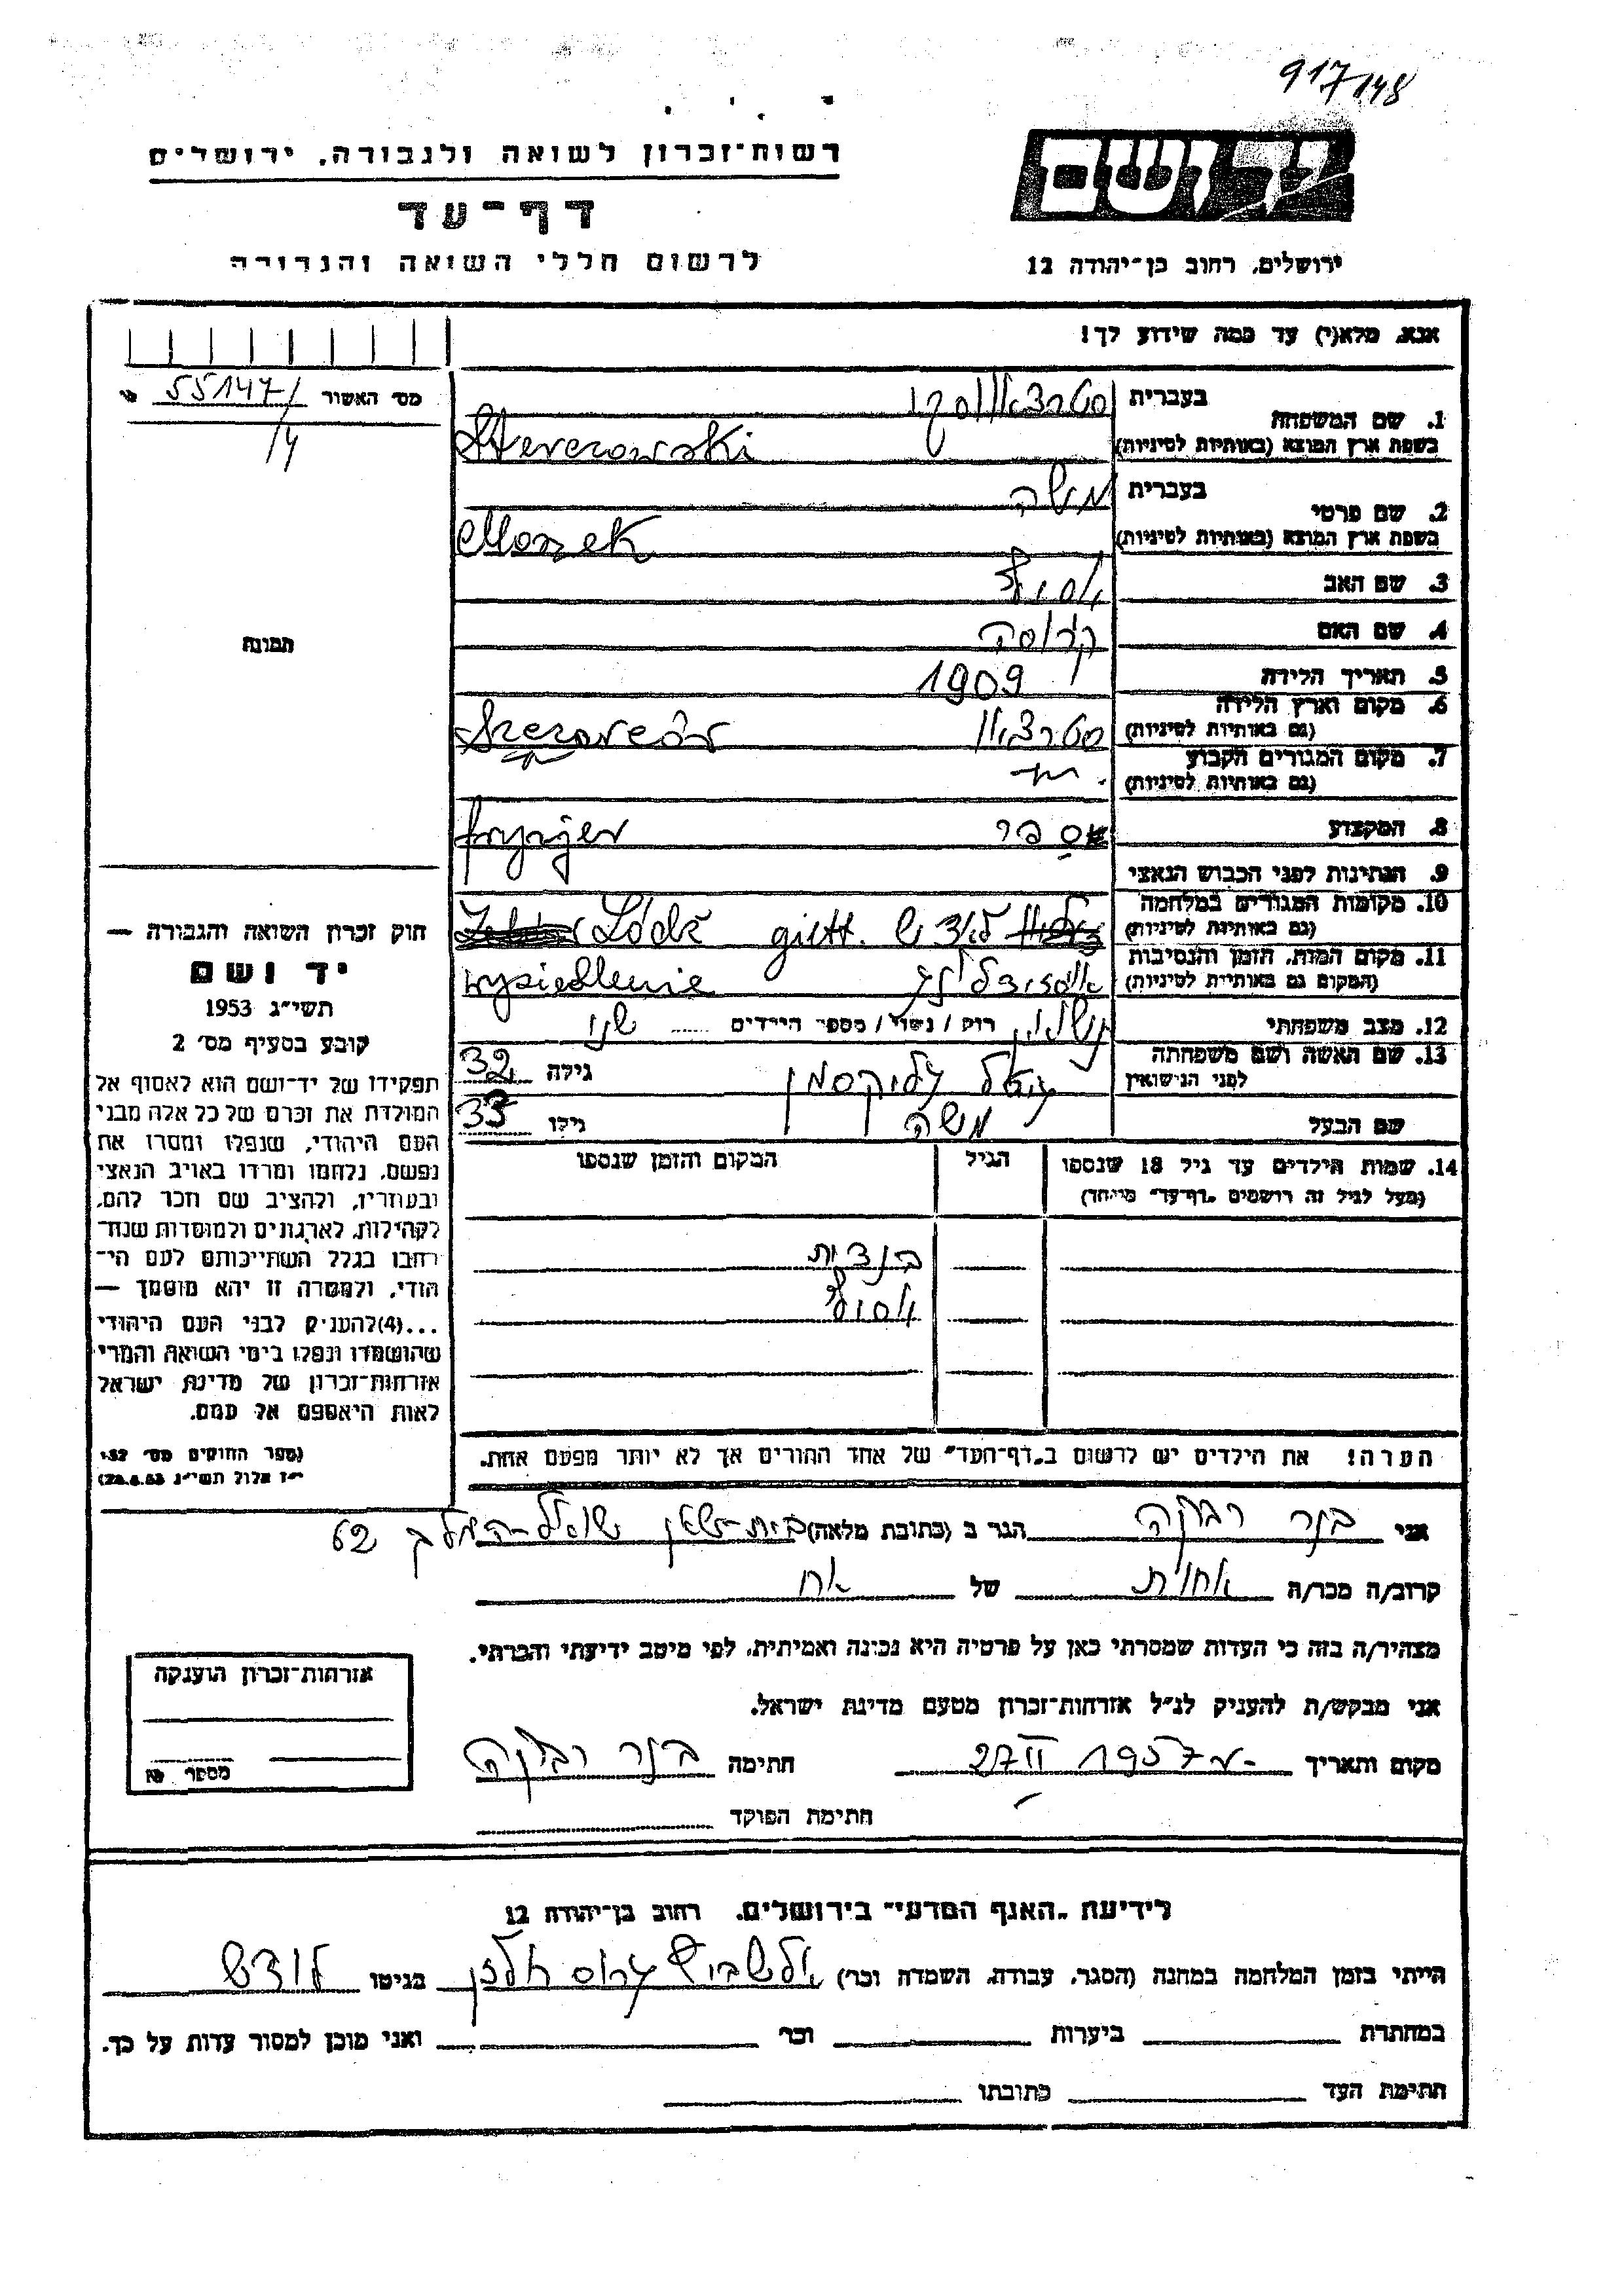 917/148
רשות־זכרון לשואה ולגבורה, ירושלים
דף־עד
לרשום חללי השואה והגבורה
יד ושם
ירושלים, רחוב בן־יהודה 12
אנא, מלא(י) עד כמה שידוע לך!
מס' האשור 55147/
14
1. שם המשפחה
בעברית
בשפת ארץ המוצא (באותיות לטיניות)
2. שם פרטי
בעברית משה
בשפת ארץ המוצא (באותיות לטיניות) Moszek
3. שם האב יוסף
4. שם האם
5. תאריך הלידה 1909
6. מקום וארץ הלידה
(גם באותיות לטיניות)
7. מקום המגורים הקבוע
(גם באותיות לטיניות)
8. המקצוע ספר fryzjer
9. הנתינות לפני הכבוש הנאצי
10. מקומות המגורים במלחמה
(גם באותיות לטיניות) לודש giett. Lódź
11. מקום המות, הזמן והנסיבות
(המקום גם באותיות לטיניות) wysiedlenie
12. מצב משפחתי רוק / נשוי / מספר הילדים שני
13. שם האשה ושם משפחתה
לפני הנישואין גילה 32
שם הבעל משה גילו 33
14. שמות הילדים עד גיל 18 שנספו
(מעל לגיל זה רושמים "דף־עד" מיוחד)
הגיל
המקום והזמן שנספו
בן ציון
יוסף
הערה! את הילדים יש לרשום ב"דף־העד" של אחד ההורים אך לא יותר מפעם אחת.
תמונה
חוק זכרון השואה והגבורה —
יד ושם
תשי"ג 1953
קובע בסעיף מס' 2
תפקידו של יד־ושם הוא לאסוף אל
המולדת את זכרם של כל אלה מבני
העם היהודי, שנפלו ומסרו את
נפשם, נלחמו ומרדו באויב הנאצי
ובעוזריו, ולהציב שם וזכר להם,
לקהילות, לארגונים ולמוסדות שנח־
רבו בגלל השתייכותם לעם הי־
הודי, ולמטרה זו יהא מוסמך —
...(4)להעניק לבני העם היהודי
שהושמדו ונפלו בימי השואה והמרי
אזרחות־זכרון של מדינת ישראל
לאות היאספם אל עמם.
(ספר החוקים מס' 132
י"ז אלול תשי"ג 28.8.53)
אני בנר רבקה הגר ב (כתובת מלאה) בית־שאן שאול־המלך 62
קרוב/ה מכר/ה אחות של אח
מצהיר/ה בזה כי העדות שמסרתי כאן על פרטיה היא נכונה ואמיתית, לפי מיטב ידיעתי והכרתי.
אני מבקש/ת להעניק לנ"ל אזרחות־זכרון מטעם מדינת ישראל.
מקום ותאריך 27 II 1957 חתימה בנר רבקה
חתימת הפוקד
אזרחות־זכרון הוענקה
מספר №
לידיעת "האגף המדעי" בירושלים, רחוב בן־יהודה 12
הייתי בזמן המלחמה במחנה (הסגר, עבודה, השמדה וכו') בגיטו לודש
במחתרת ביערות וכו' ואני מוכן למסור עדות על כך.
חתימת העד כתובתו